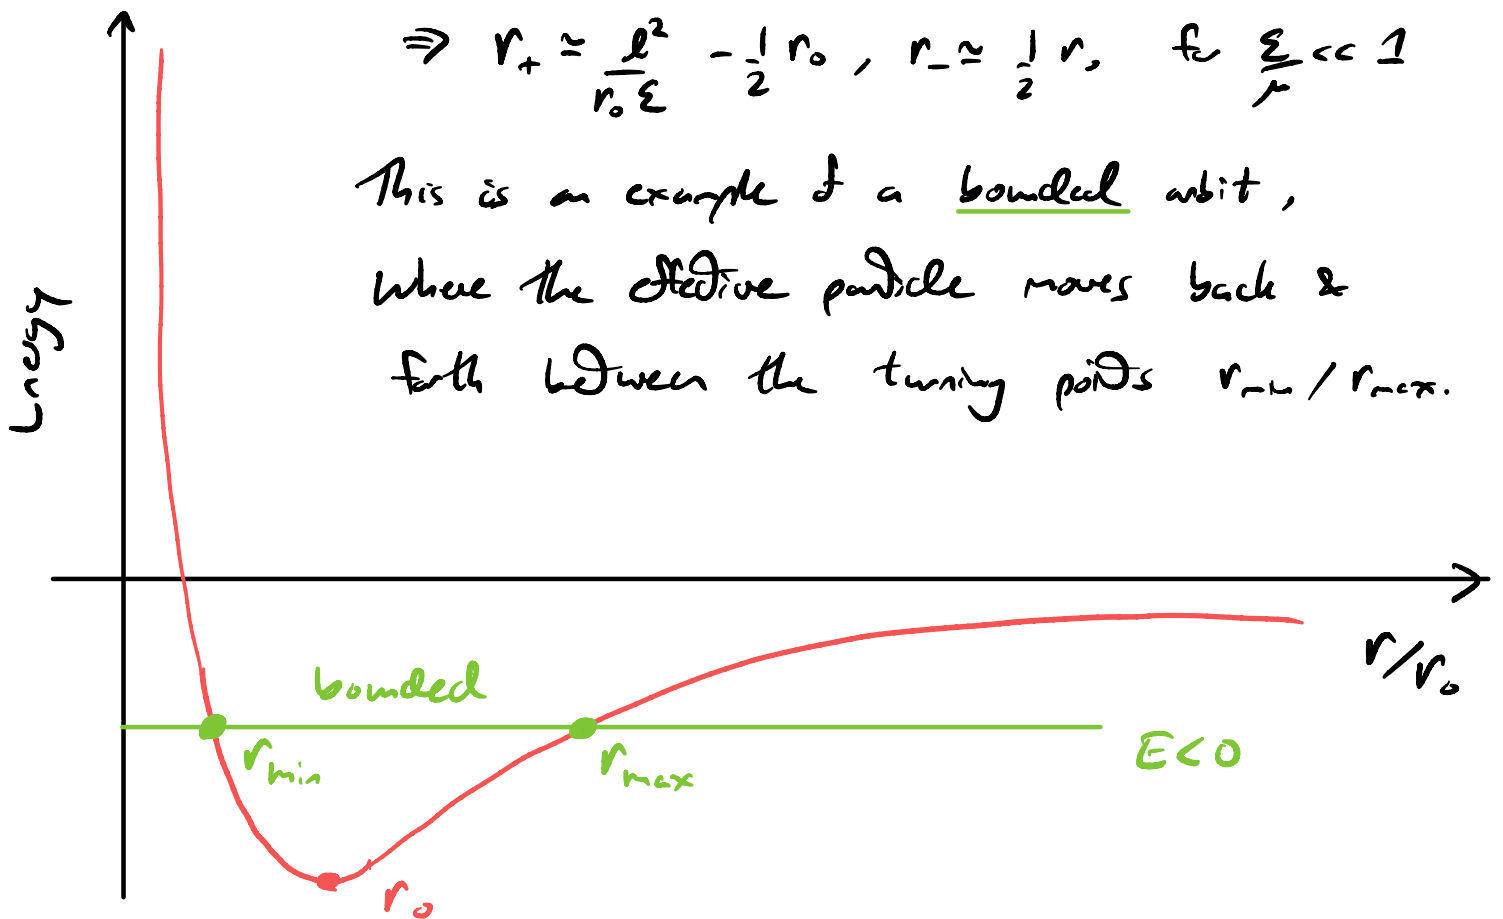 ⇒ r₊ ≃ l²/(r₀ε) - 1/2 r₀, r₋ ≃ 1/2 r₀ for ε/μ << 1
This is an example of a bounded orbit,
where the effective particle moves back &
forth between the turning points r_min / r_max.
Energy
r/r₀
bounded
r_min
r_max
E<0
r₀